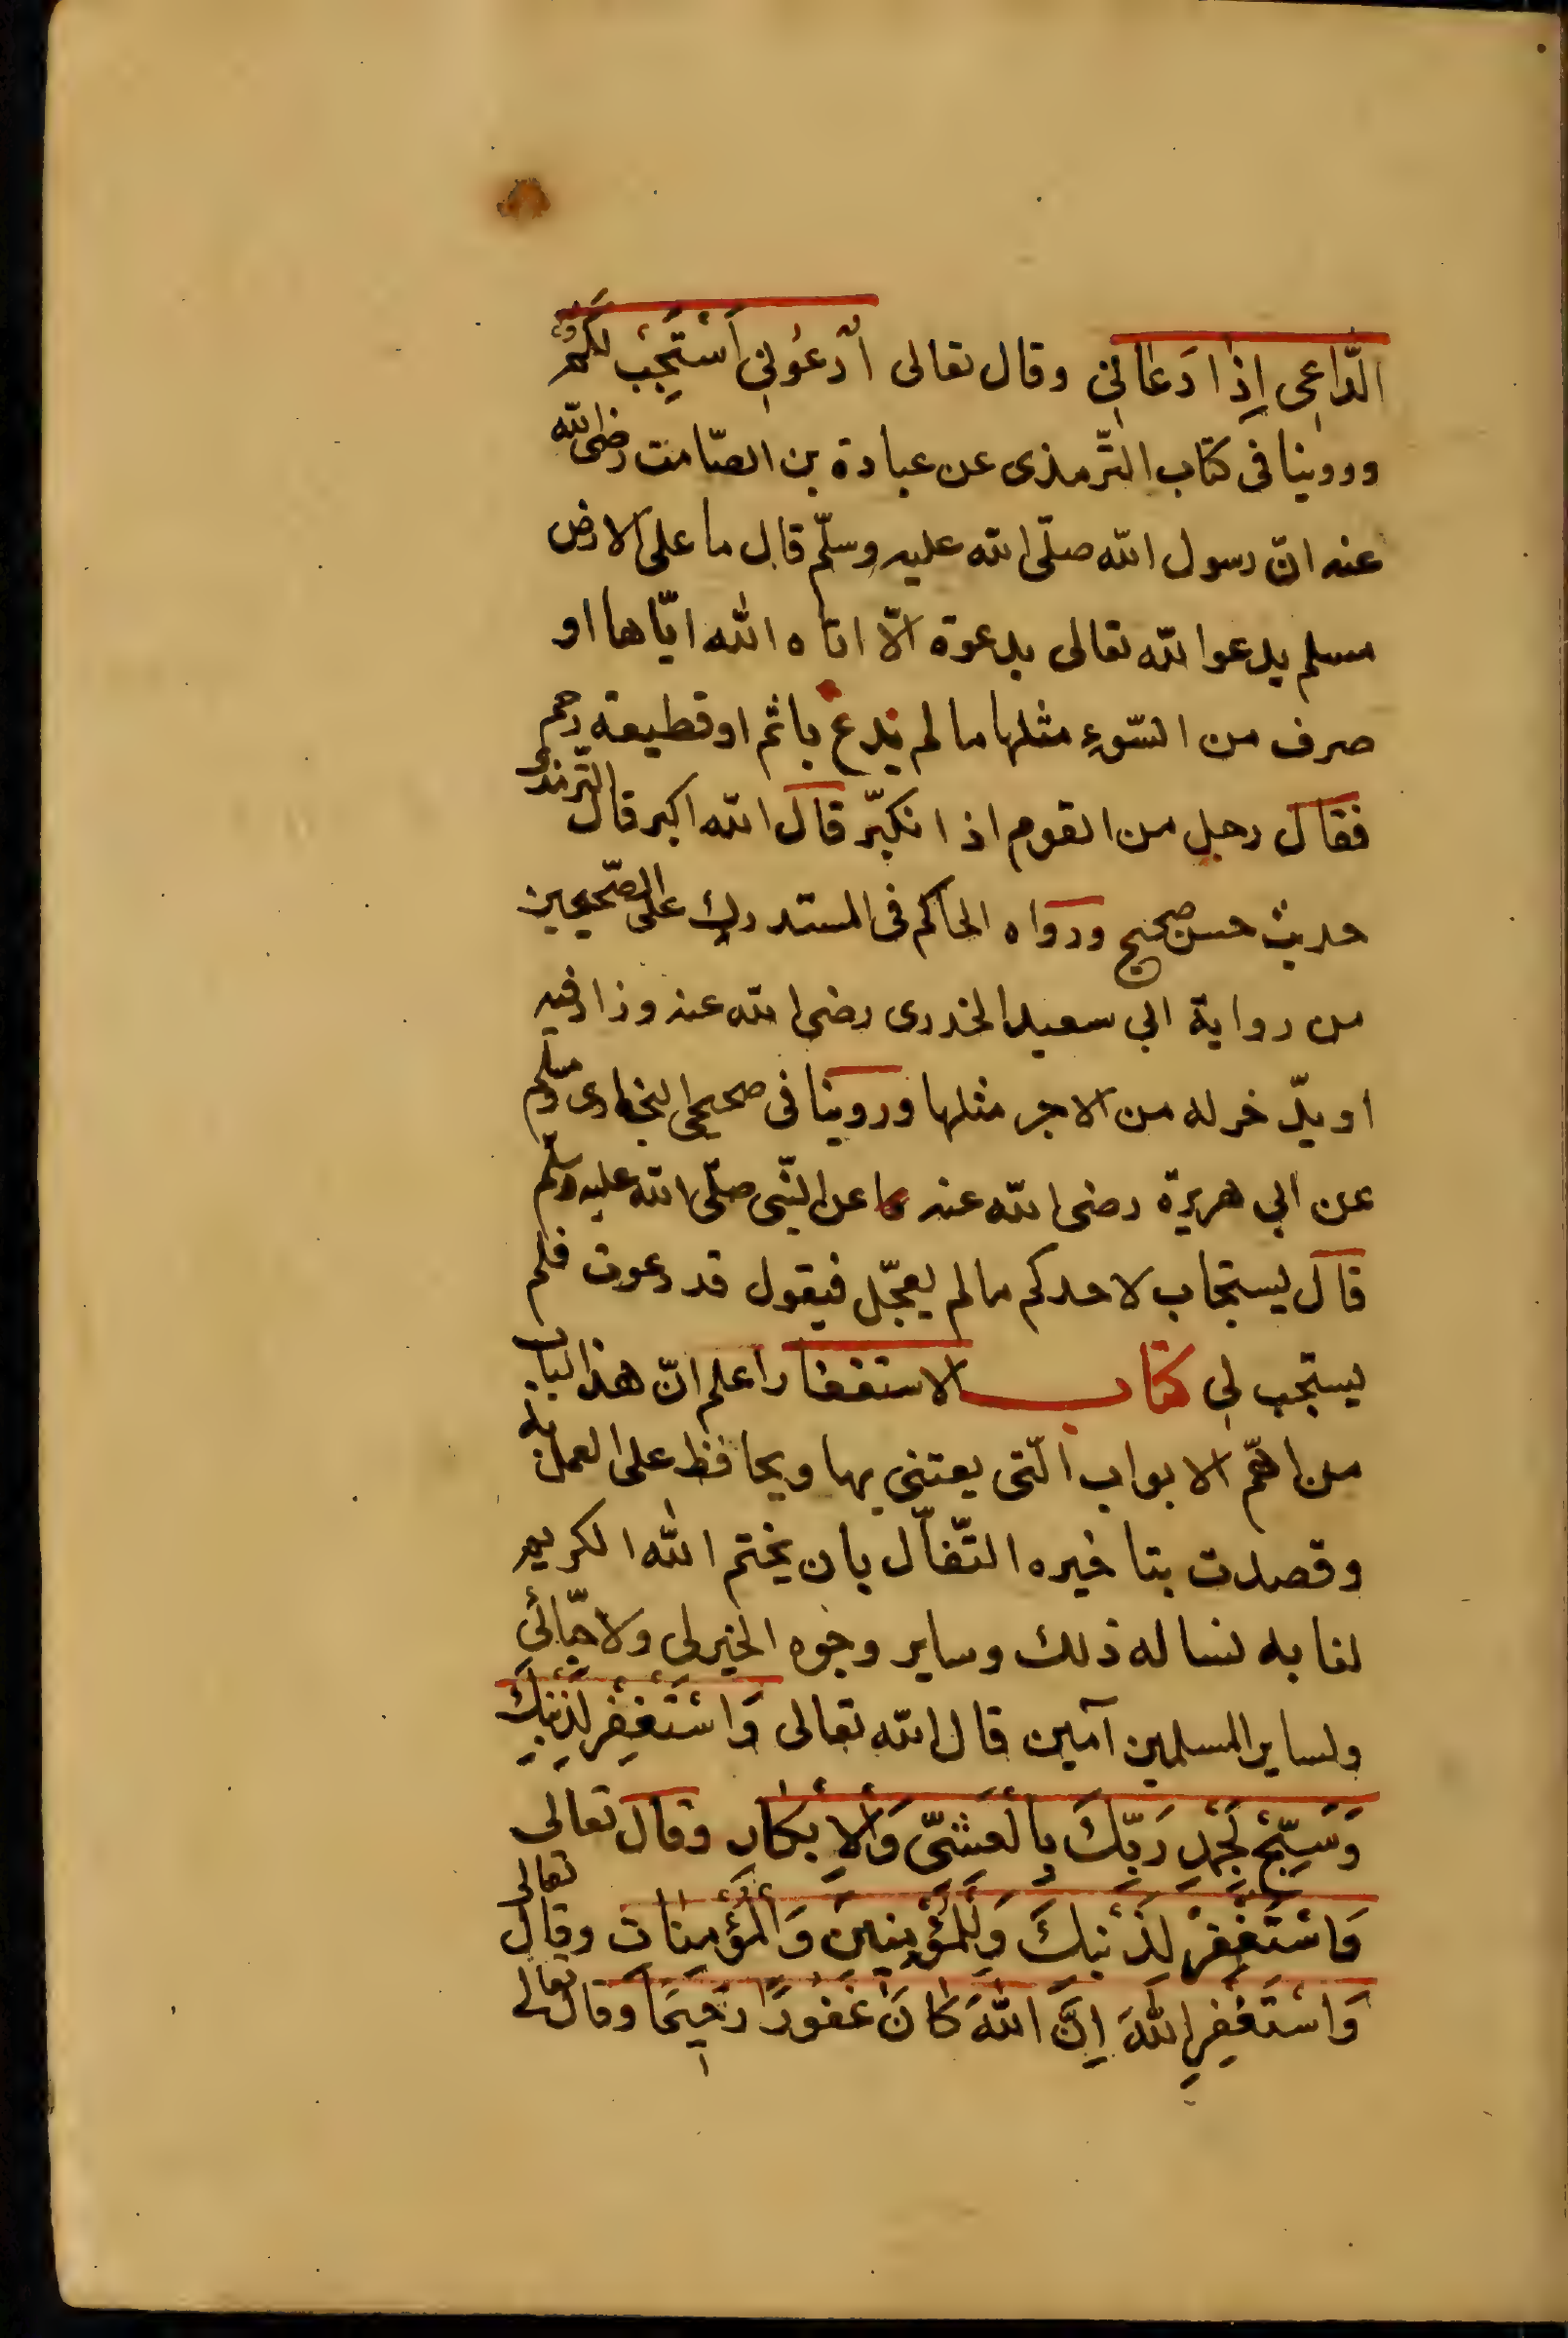 الدّاعِى إِذَا دَعَانِى وقال تعالى اُدْعُونِى أَسْتَجِبْ لَكُمْ
وروينا فى كتاب التّرمذى عن عبادة بن الصّامت رضى الله
عنه انّ رسول الله صلّى الله عليه وسلّم قال ما على الارض
مسلم يدعوا الله تعالى بدعوة الّا اتاه الله ايّاها او
صرف من السّوءِ مثلها ما لم يدعُ باثم او قطيعة رحم
فقال رجل من القوم اذا نكثّر قال الله اكبر قال التّرمذى
حديث حسن صحيح ورواه الحاكم فى المستدرك على الصّحيحين
من رواية ابى سعيد الخدرى رضى الله عنه وزاد فيه
او يدّخر له من الاجر مثلها وروينا فى صحيحى البخارى ومسلم
عن ابى هريرة رضى الله عنه عن النّبى صلّى الله عليه وسلّم
قال يستجاب لاحدكم ما لم يعجّل فيقول قد دعوت فلم
يستجب لى كتاب الاستغفار اعلم انّ هذا الباب
من اهمّ الابواب الّتى يعتنى بها ويحافظ على العمل به
وقصدت بتاخيره التّفأل بان يختم الله الكريم
لنا به نساله ذلك وساير وجوه الخير لى ولاحبّائى
ولساير المسلمين آمين قال الله تعالى وَاسْتَغْفِرْ لِذَنْبِكَ
وَسَبِّحْ بِحَمْدِ رَبِّكَ بِالْعَشِىِّ وَالْإِبْكَارِ وقال تعالى
وَاسْتَغْفِرْ لِذَنْبِكَ وَلِلْمُؤْمِنِينَ وَالْمُؤْمِنَات وقال تعالى
وَاسْتَغْفِرِ اللهَ اِنَّ اللهَ كَانَ غَفُورًا رَحِيمًا وقال تعالى